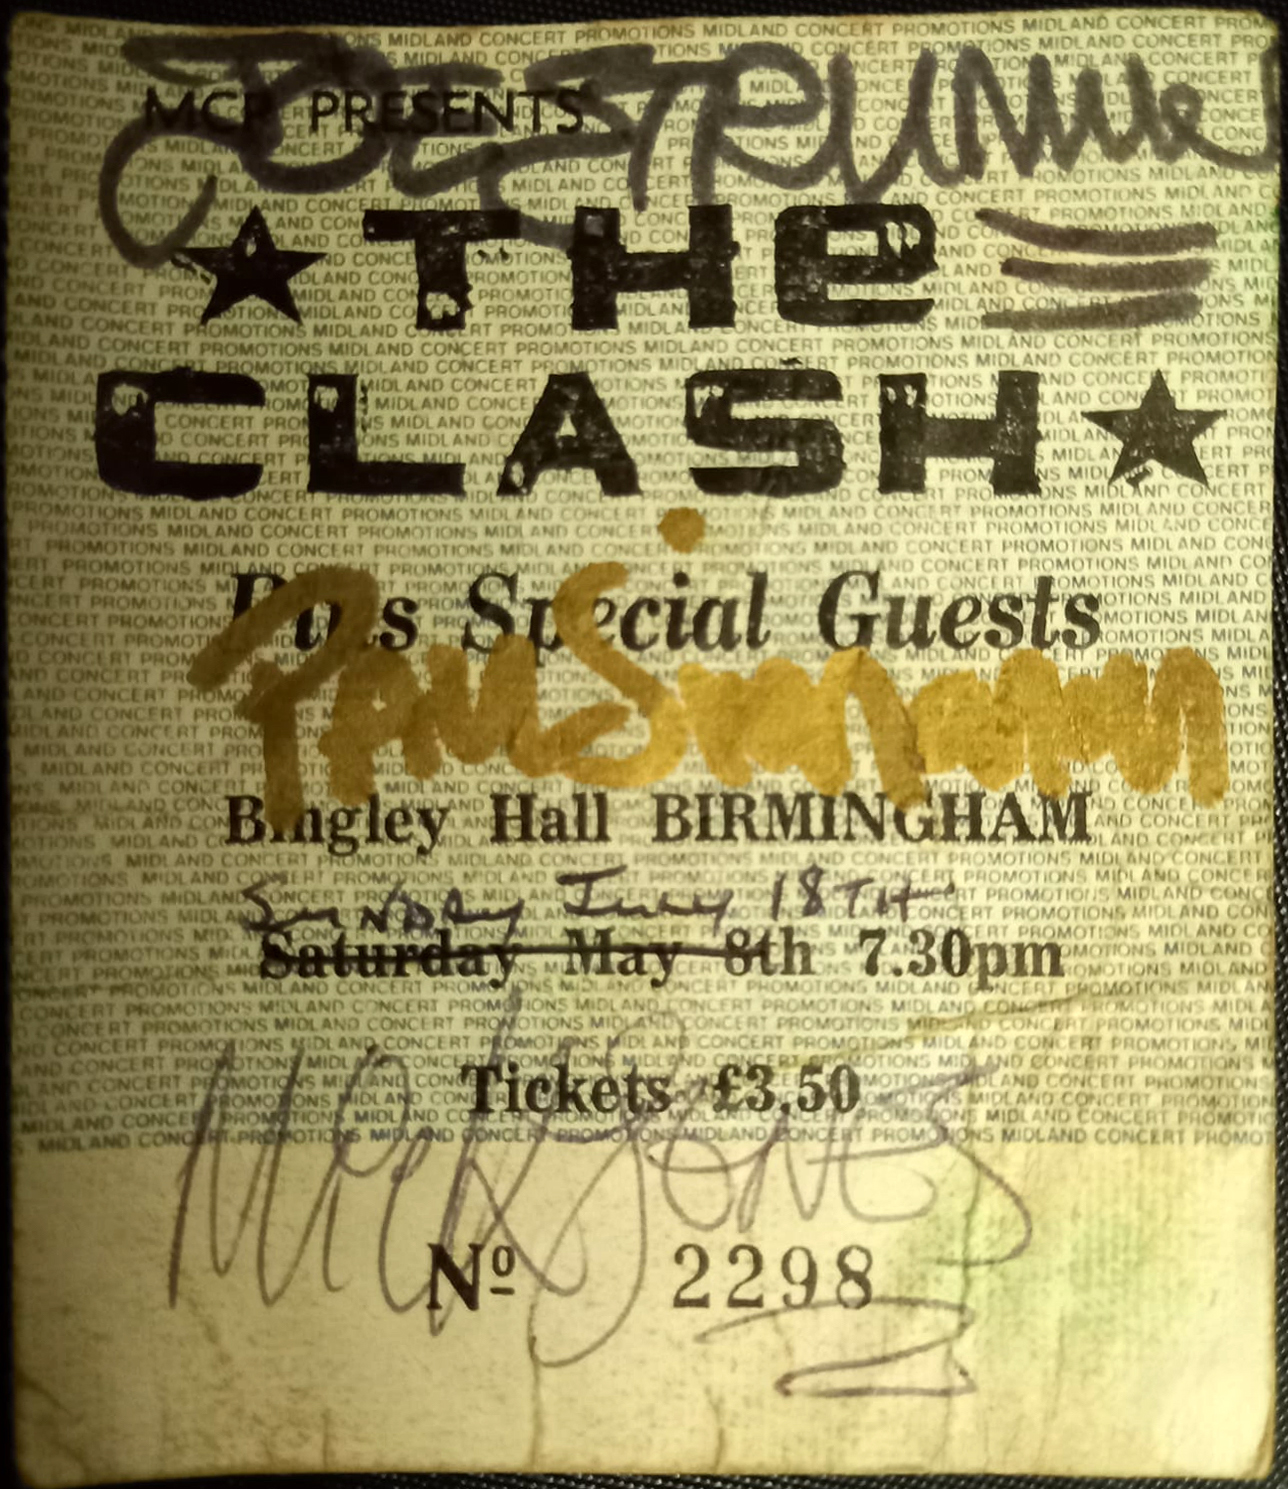 MIDLAND CONCERT PROMOTIONS MIDLAND CONCERT PROMOTIONS
JOE STRUMMER
MCP PRESENTS
★ THE
CLASH ★
Plus Special Guests
PAUL Simonon
Bingley Hall BIRMINGHAM
SUNDAY JULY 18TH
Saturday May 8th 7.30pm
Tickets £3.50
MICK JONES
Nº 2298